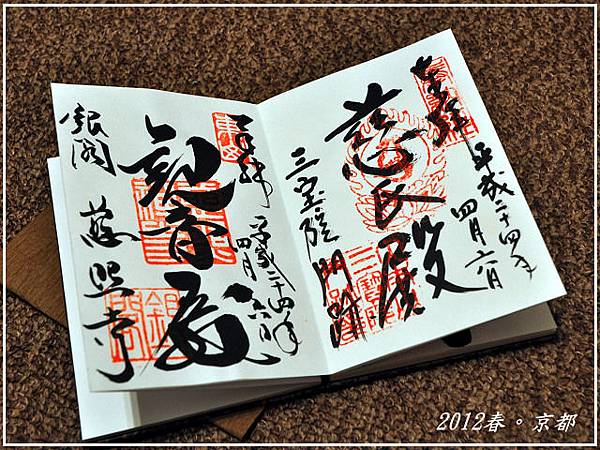 奉拝
平成二十四年
四月六日
慈氏殿
三宝院門跡
奉拝
平成二十四年
四月六日
観音殿
銀閣 慈照寺
2012春。京都